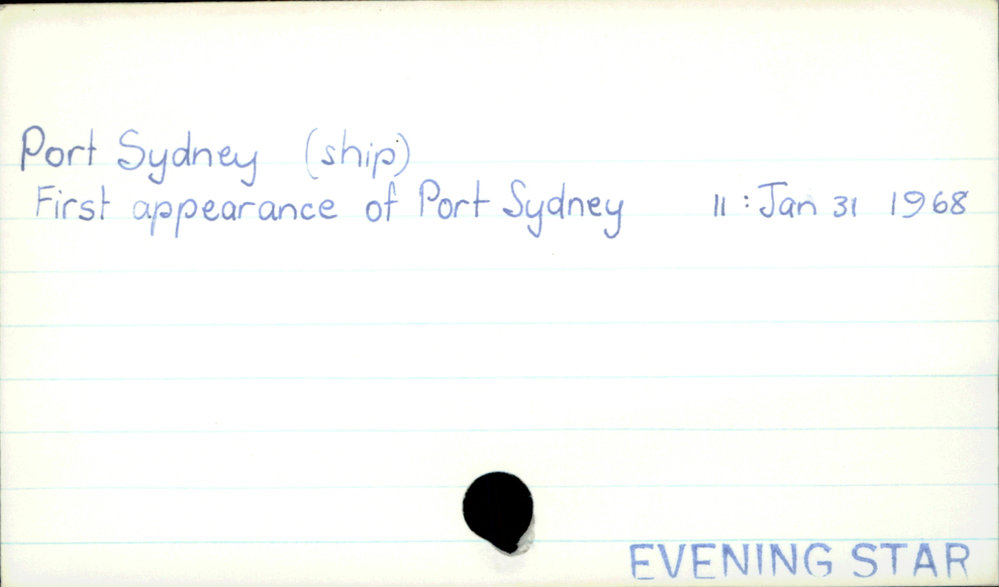 Port Sydney (ship)
First appearance of Port Sydney 11 : Jan 31 1968
EVENING STAR